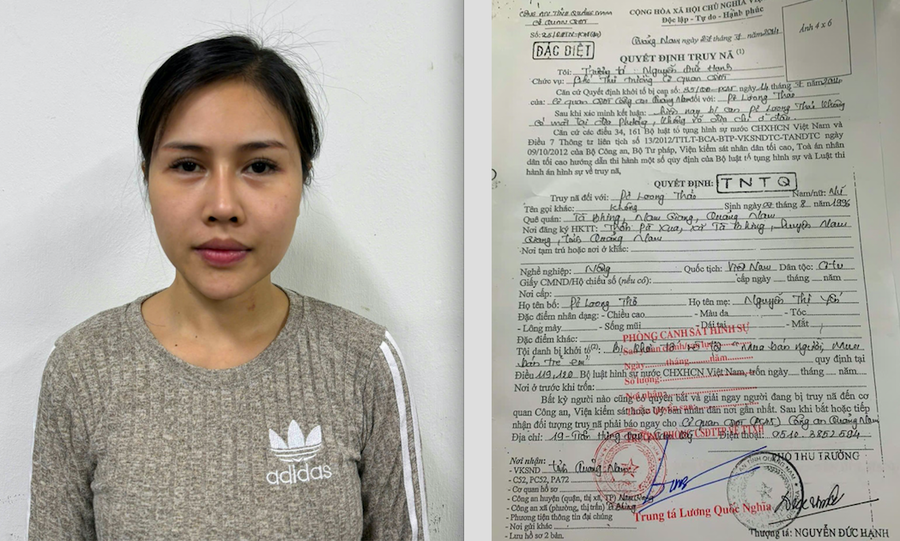 adidas
CÔNG AN TỈNH QUẢNG NAM
CỘNG HÒA XÃ HỘI CHỦ NGHĨA VIỆ
CƠ QUAN CSĐT
Độc lập - Tự do - Hạnh phúc
Số:
Quảng Nam ngày tháng năm
ĐẶC BIỆT
Ảnh 4 x 6
QUYẾT ĐỊNH TRUY NÃ (1)
Tôi: Thượng tá: Nguyễn Đức Hạnh
Chức vụ: Phó Thủ trưởng Cơ quan CSĐT
Căn cứ Quyết định khởi tố bị can số: ngày tháng năm
của: Cơ quan CSĐT Công an Quảng Nam đối với: Pơ Loong Thảo
Sau khi xác minh kết luận: hiện nay bị can Pơ Loong Thảo không
có mặt tại địa phương, không rõ địa chỉ ở đâu.
Căn cứ các điều 34, 161 Bộ luật tố tụng hình sự nước CHXHCN Việt Nam và
Điều 7 Thông tư liên tịch số 13/2012/TTLT-BCA-BTP-VKSNDTC-TANDTC ngày
09/10/2012 của Bộ Công an, Bộ Tư pháp, Viện kiểm sát nhân dân tối cao, Toà án nhân
dân tối cao hướng dẫn thi hành một số quy định của Bộ luật tố tụng hình sự và Luật thi
hành án hình sự về truy nã,
QUYẾT ĐỊNH: TNTQ
Truy nã đối với: Pơ Loong Thảo Nam/nữ: Nữ
Tên gọi khác: Không Sinh ngày tháng 8 năm 1996
Quê quán: Tà Bhing, Nam Giang, Quảng Nam
Nơi đăng ký HKTT: Thôn Pà Xua, xã Tà Bhing, huyện Nam
Giang, tỉnh Quảng Nam
Nơi tạm trú hoặc nơi ở khác:
Nghề nghiệp: Nông Quốc tịch: Việt Nam Dân tộc: Cơ tu
Giấy CMND/Hộ chiếu số (nếu có): cấp ngày tháng năm
Nơi cấp:
Họ tên bố: Pơ Loong Họ tên mẹ: Nguyễn Thị Yến
Đặc điểm nhân dạng: - Chiều cao - Màu da - Tóc
- Lông mày - Sống mũi - Dái tai - Mắt
Đặc điểm khác: PHÒNG CẢNH SÁT HÌNH SỰ
Tội danh bị khởi tố (2): Bị khởi tố về tội Mua bán người, Mua
bán trẻ em quy định tại
Ngày tháng năm
Điều 119, 120 Bộ luật hình sự nước CHXHCN Việt Nam, trốn ngày tháng năm
Số lượng:
Nơi ở trước khi trốn:
Nơi nhận:
Bất kỳ người nào cũng có quyền bắt và giải ngay người đang bị truy nã đến cơ
quan Công an, Viện kiểm sát hoặc Uỷ ban nhân dân nơi gần nhất. Sau khi bắt hoặc tiếp
nhận đối tượng truy nã phải báo ngay cho Cơ quan CSĐT (PC45) Công an Quảng Nam
Địa chỉ: 19- Điện thoại: 0510.3852594
PHÓ THỦ TRƯỞNG
Nơi nhận:
- VKSND tỉnh Quảng Nam
- C52, PC52, PA72
- Cơ quan hồ sơ
- Công an huyện (quận, thị xã, TP) Nam Giang
- Công an xã (phường, thị trấn) Tà Bhing
- Phương tiện thông tin đại chúng
- Nơi gửi khác
- Lưu hồ sơ 2 bản.
Trung tá Lương Quốc Nghĩa
Thượng tá: NGUYỄN ĐỨC HẠNH